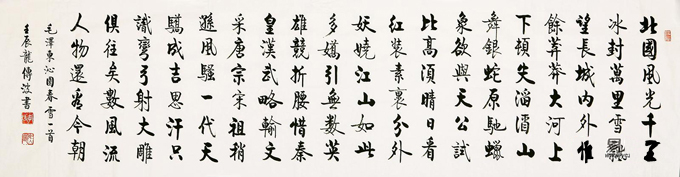 北國風光千里
冰封萬里雪
望長城內外惟
餘莽莽大河上
下頓失滔滔山
舞銀蛇原馳蠟
象欲與天公試
比高須晴日看
紅裝素裹分外
妖嬈江山如此
多嬌引無數英
雄競折腰惜秦
皇漢武略輸文
采唐宗宋祖稍
遜風騷一代天
驕成吉思汗只
識彎弓射大雕
俱往矣數風流
人物還看今朝
毛澤東沁園春雪一首
壬辰龍傳書